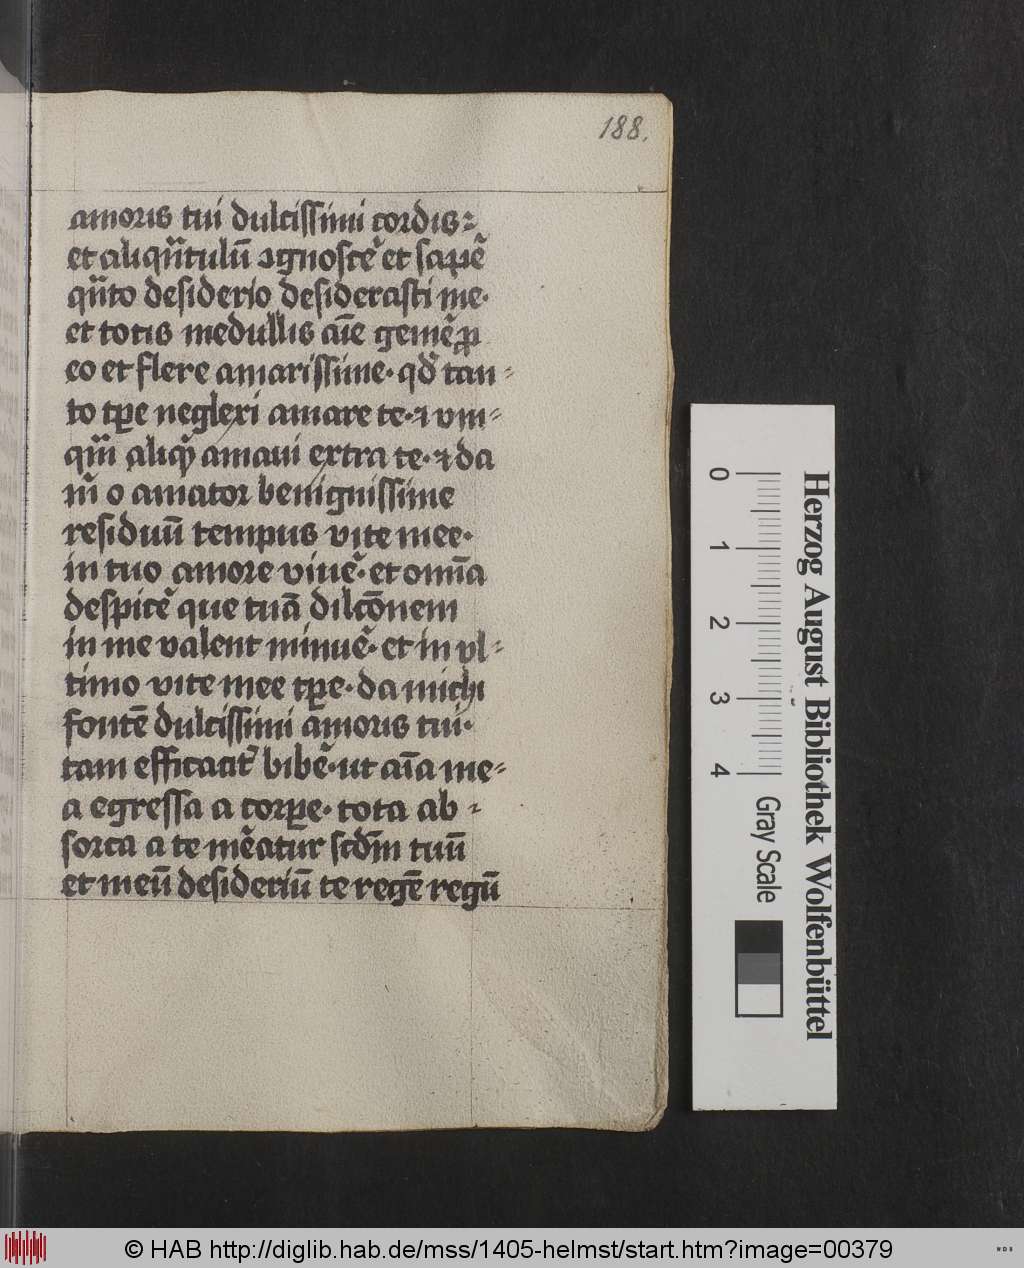 188.
amoris tui dulcissimi cordis⹀
et aliqñtulū ꝯgnoscẽ et sapẽ
qñto desiderio desiderasti me·
et totis medullis aīe gemẽ ꝓ
eo et flere amarissime· qđ tan⸗
to tꝑe neglexi amare te· ⁊ vm̄⸗
qũ aliqđ amaui extra te· ⁊ da
m̃ o amator benignissime
residuū tempus vite mee·
in tuo amore viuẽ· et omīa
despicẽ que tuā dilcōnem
in me valent minuẽ· et in vl⸗
timo vite mee tꝑe· da michi
fontē dulcissimi amoris tui·
tam efficacit̃ bibẽ· ut aīa me⸗
a egressa a corꝑe· tota ab⸗
sorta a te mẽatur scđm tuū
et meū desideriū te regē regū
Herzog August Bibliothek Wolfenbüttel
0 1 2 3 4 Gray Scale
© HAB http://diglib.hab.de/mss/1405-helmst/start.htm?image=00379